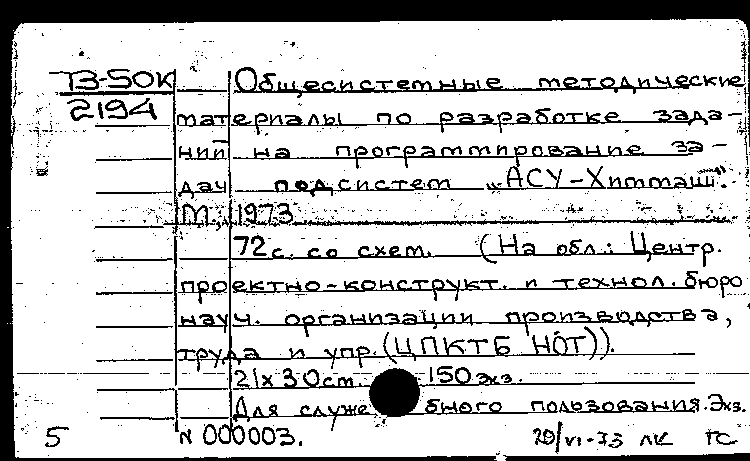 ТЗ-50К Общесистемные методические
2194 материалы по разработке зада-
ний на программирование за-
дач подсистем „АСУ-Химмаш".
М., 1973
72с. со схем. (На обл.: Центр.
проектно-конструкт. и технол. бюро
науч. организации производства,
труда и упр. (ЦПКТБ НОТ)).
21х30см. 150 экз.
Для служебного пользования. Экз.
N 000003.
5 29/VI-73 ЛК ГС